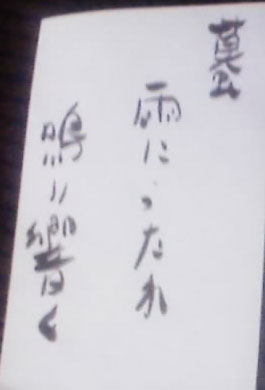 墓
雨にうたれ
鳴り響く